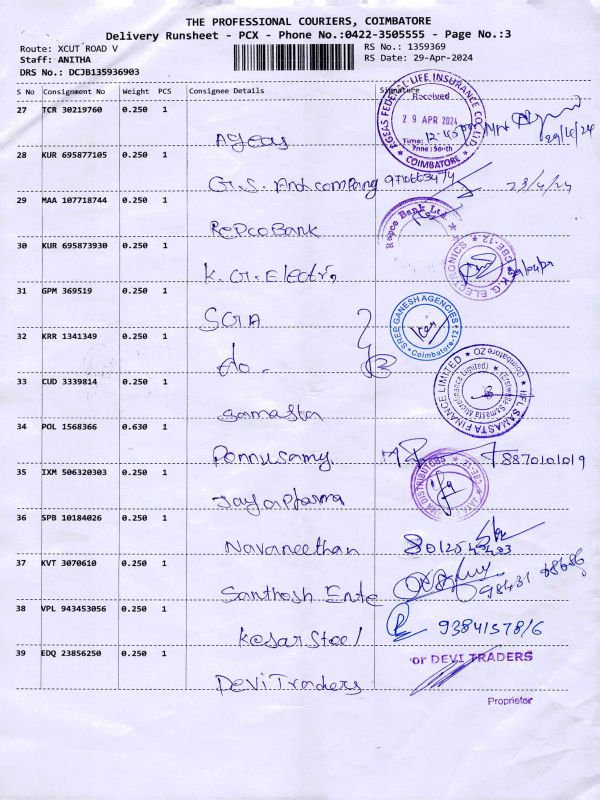 THE PROFESSIONAL COURIERS, COIMBATORE
Delivery Runsheet - PCX - Phone No.:0422-3505555 - Page No.:3
Route: XCUT ROAD V
RS No.: 1359369
Staff: ANITHA
RS Date: 29-Apr-2024
DRS No.: DCJB135936903
S No Consignment No Weight PCS Consignee Details Signature
27 TCR 30219760 0.250 1
Ageas
EGEAS FEDERAL LIFE INSURANCE CO LTD
Received
29 APR 2024
Time: 12:45 pm
COIMBATORE
29/4/24
28 KUR 695877105 0.250 1
G.S. And company
29/4/24
29 MAA 107718744 0.250 1
Repco Bank
Repco Bank Ltd
30 KUR 695873930 0.250 1
K. G. Electro
K.G. ELECTRONICS
CBE-12
31 GPM 369519 0.250 1
SGA
SREE GANESH AGENCIES
Coimbatore-12
32 KRR 1341349 0.250 1
do.
33 CUD 3339814 0.250 1
Samasta
IIFL SAMASTA FINANCE LIMITED
Coimbatore ZO
(Erstwhile Samasta Microfinance Limited)
34 POL 1568366 0.630 1
Ponnusamy
8870101019
35 IXM 506320303 0.250 1
Jaya Pharma
DISTRIBUTORS
CBE-12
36 SPB 10184026 0.250 1
Navaneethan
37 KVT 3070610 0.250 1
Santhosh Ente
98431 68686
38 VPL 943453056 0.250 1
Kesar Steel
9384157816
39 EDQ 23856250 0.250 1
Devi Traders
or DEVI TRADERS
Proprietor